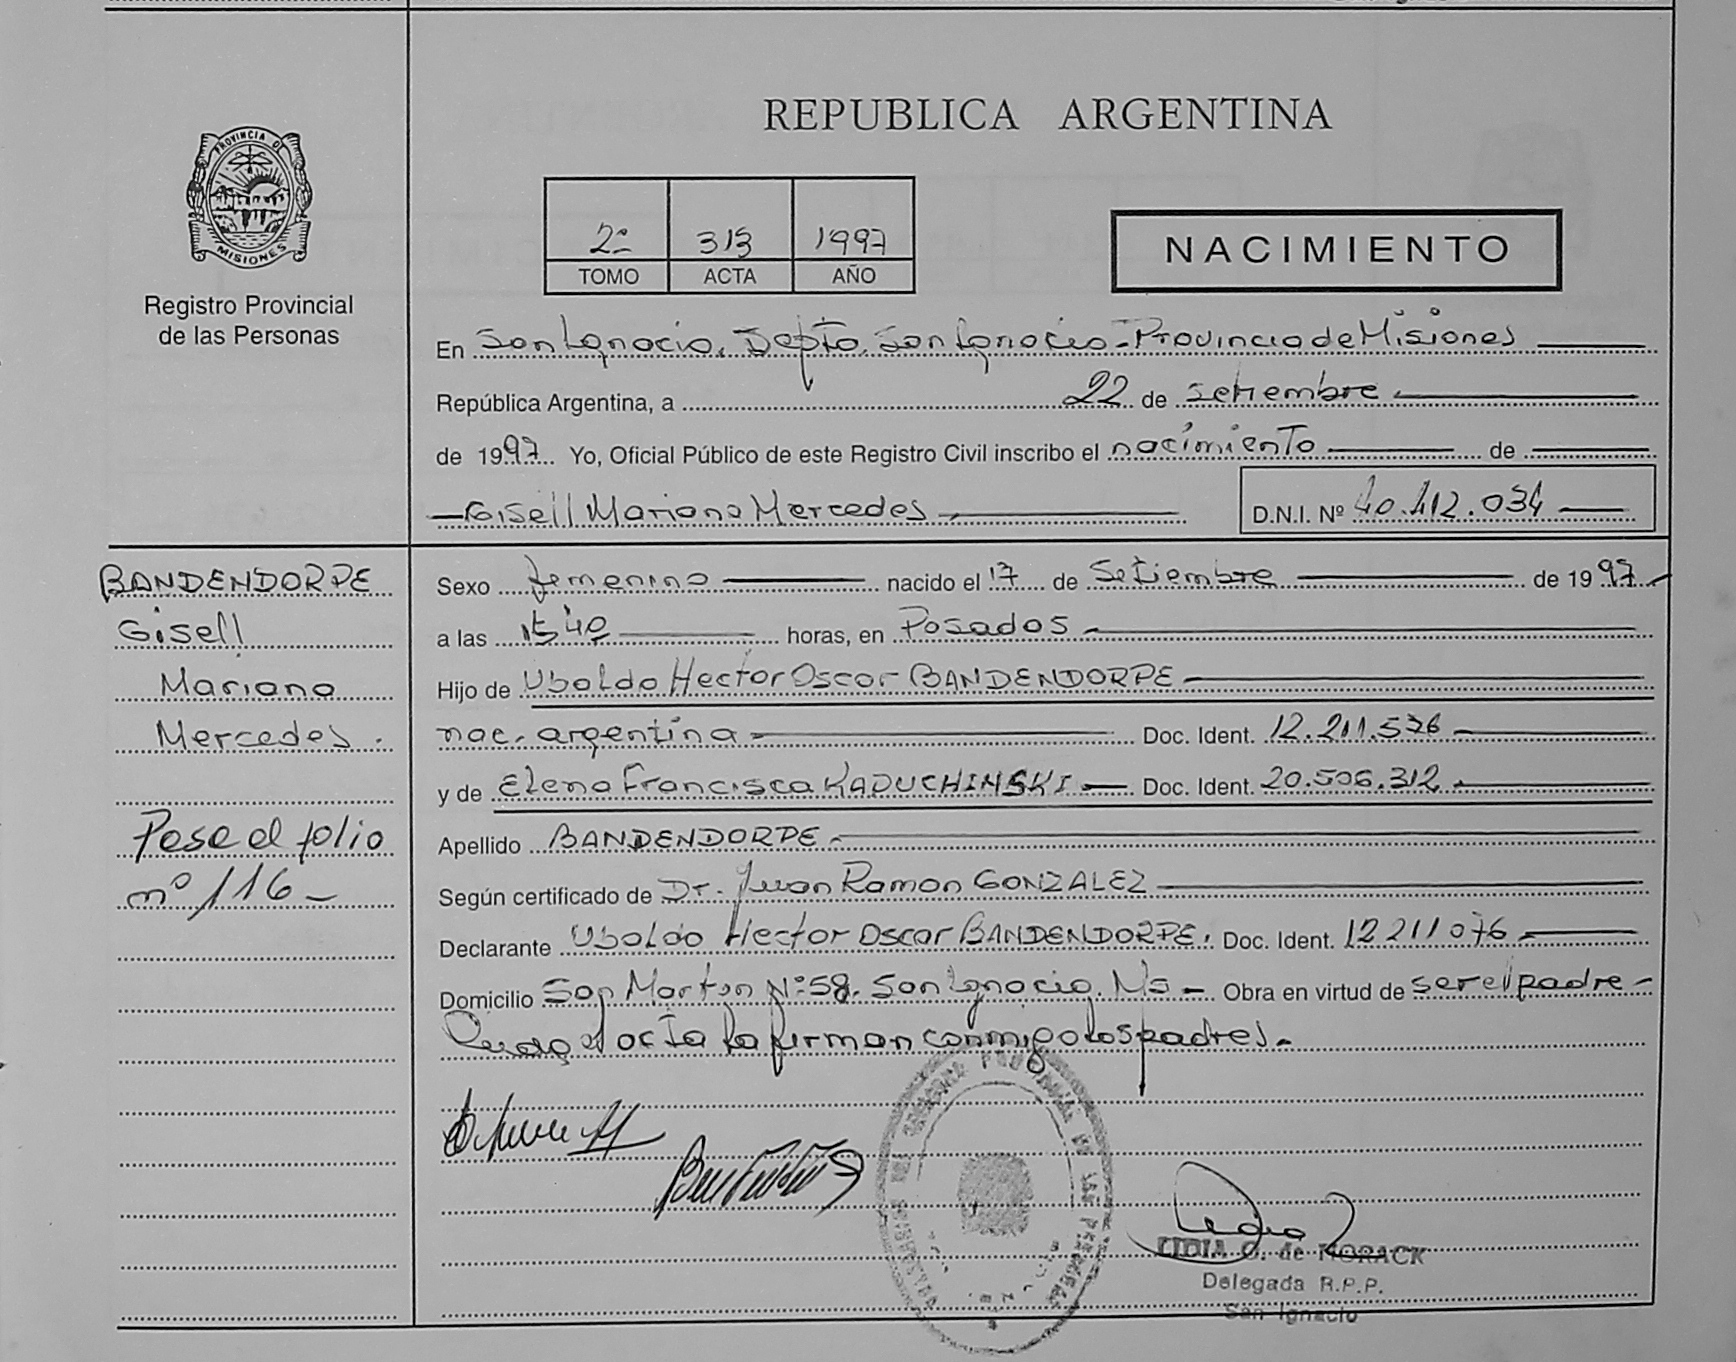 REPUBLICA ARGENTINA
PROVINCIA DE
MISIONES
Registro Provincial
de las Personas
2º 313 1997
TOMO ACTA AÑO
NACIMIENTO
En San Ignacio, Depto. San Ignacio - Provincia de Misiones
República Argentina, a 22 de setiembre
de 1997 Yo, Oficial Público de este Registro Civil inscribo el nacimiento de
Gisell Mariana Mercedes D.N.I. Nº 40.412.034
BANDENDORPE
Gisell
Mariana
Mercedes.
Pasa al folio
nº 116 -
Sexo femenino nacido el 17 de Setiembre de 1997
a las horas, en Posadas
Hijo de Ubaldo Hector Oscar BANDENDORPE
nac. argentina Doc. Ident.
y de Elena Francisca KADUCHINSKI Doc. Ident. 20.506.312
Apellido BANDENDORPE
Según certificado de Dr. Juan Ramon GONZALEZ
Declarante Ubaldo Hector Oscar BANDENDORPE. Doc. Ident. 12 211 076
Domicilio San Martin Nº 58. San Ignacio. Ms - Obra en virtud de ser el padre -
acta la firman conmigo los padres.-
LIDIA G. de MORACK
Delegada R.P.P.
San Ignacio